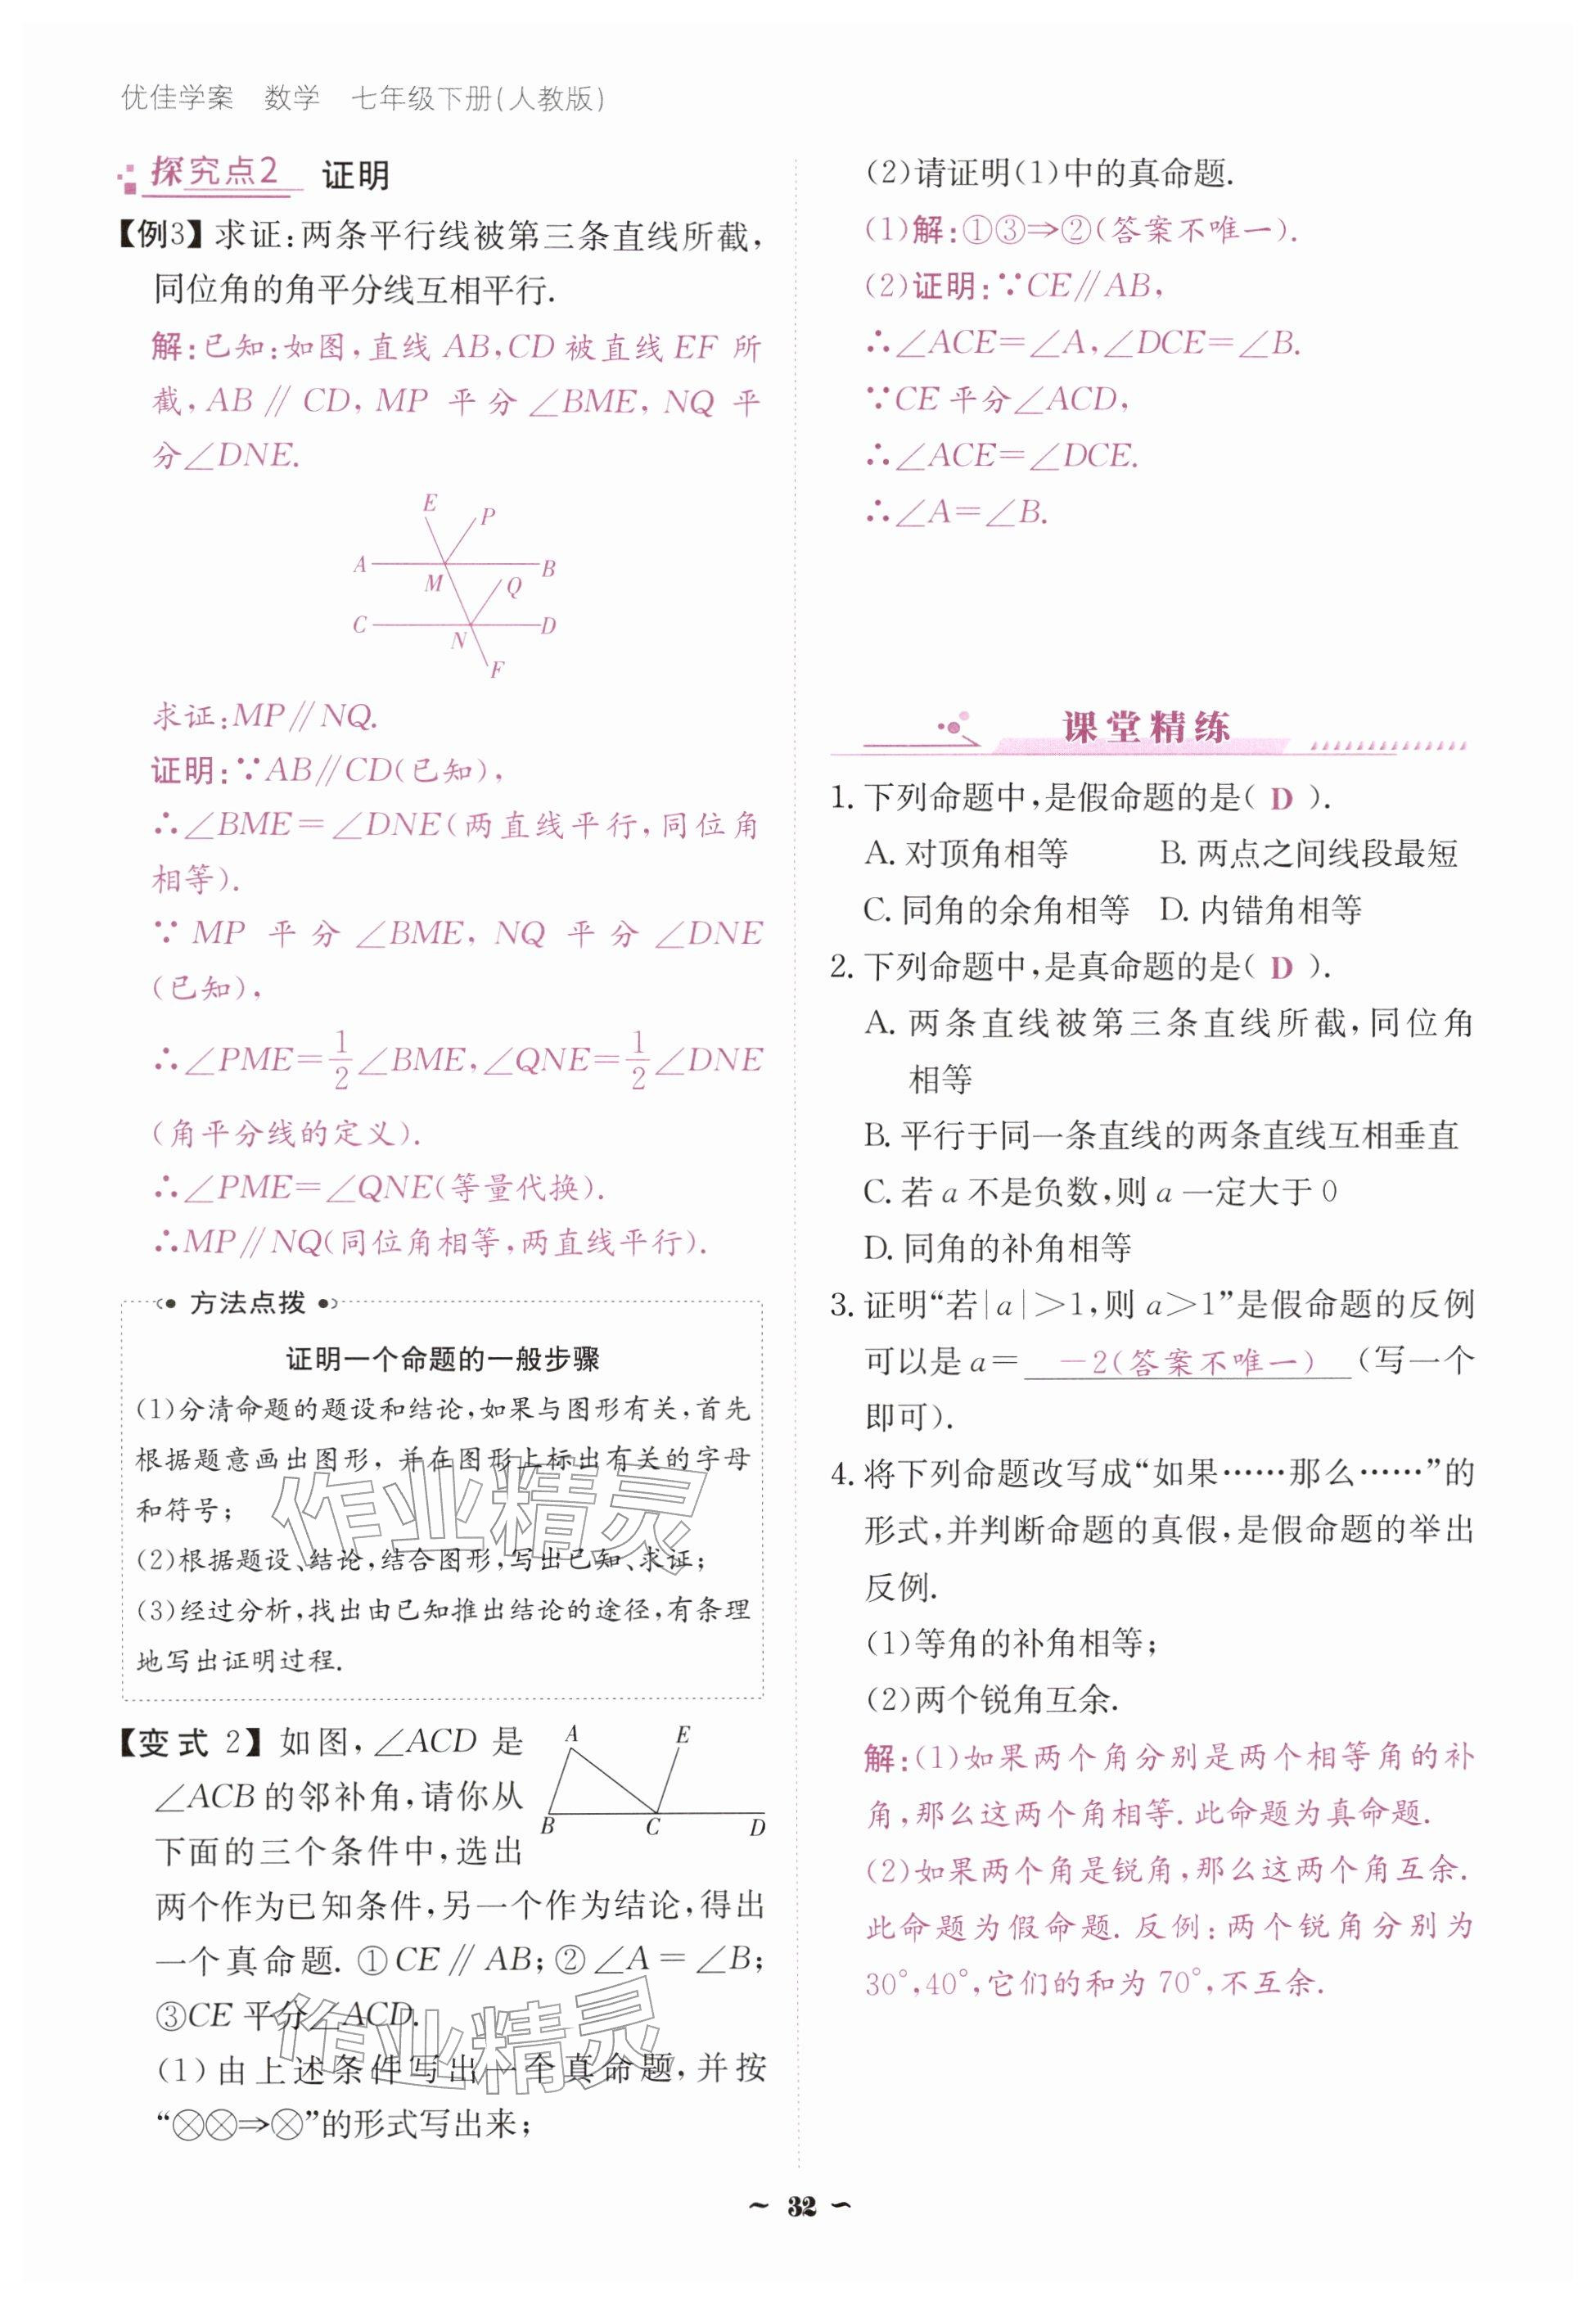 优佳学案 数学 七年级下册(人教版)
探究点2 证明
【例3】求证:两条平行线被第三条直线所截,
同位角的角平分线互相平行.
解:已知:如图,直线 AB,CD 被直线 EF 所
截,AB∥CD,MP 平分∠BME,NQ 平
分∠DNE.
E
P
A
B
M
Q
C
D
N
F
求证:MP∥NQ.
证明:∵AB∥CD(已知),
∴∠BME=∠DNE(两直线平行,同位角
相等).
∵MP 平分∠BME,NQ 平分∠DNE
(已知),
∴∠PME=1/2∠BME,∠QNE=1/2∠DNE
(角平分线的定义).
∴∠PME=∠QNE(等量代换).
∴MP∥NQ(同位角相等,两直线平行).
方法点拨
证明一个命题的一般步骤
(1)分清命题的题设和结论,如果与图形有关,首先
根据题意画出图形,并在图形上标出有关的字母
和符号;
(2)根据题设、结论,结合图形,写出已知、求证;
(3)经过分析,找出由已知推出结论的途径,有条理
地写出证明过程.
作业精灵
【变式 2】如图,∠ACD 是
∠ACB 的邻补角,请你从
下面的三个条件中,选出
A
E
B
C
D
两个作为已知条件,另一个作为结论,得出
一个真命题.①CE∥AB;②∠A=∠B;
③CE 平分∠ACD.
(1)由上述条件写出一个真命题,并按
“⊗⊗⇒⊗”的形式写出来;
作业精灵
(2)请证明(1)中的真命题.
(1)解:①③⇒②(答案不唯一).
(2)证明:∵CE∥AB,
∴∠ACE=∠A,∠DCE=∠B.
∵CE 平分∠ACD,
∴∠ACE=∠DCE.
∴∠A=∠B.
课堂精练
1. 下列命题中,是假命题的是( D ).
A. 对顶角相等 B. 两点之间线段最短
C. 同角的余角相等 D. 内错角相等
2. 下列命题中,是真命题的是( D ).
A. 两条直线被第三条直线所截,同位角
相等
B. 平行于同一条直线的两条直线互相垂直
C. 若 a 不是负数,则 a 一定大于 0
D. 同角的补角相等
3. 证明“若|a|>1,则 a>1”是假命题的反例
可以是 a= －2(答案不唯一) (写一个
即可).
4. 将下列命题改写成“如果……那么……”的
形式,并判断命题的真假,是假命题的举出
反例.
(1)等角的补角相等;
(2)两个锐角互余.
解:(1)如果两个角分别是两个相等角的补
角,那么这两个角相等.此命题为真命题.
(2)如果两个角是锐角,那么这两个角互余.
此命题为假命题.反例:两个锐角分别为
30°,40°,它们的和为 70°,不互余.
~ 32 ~